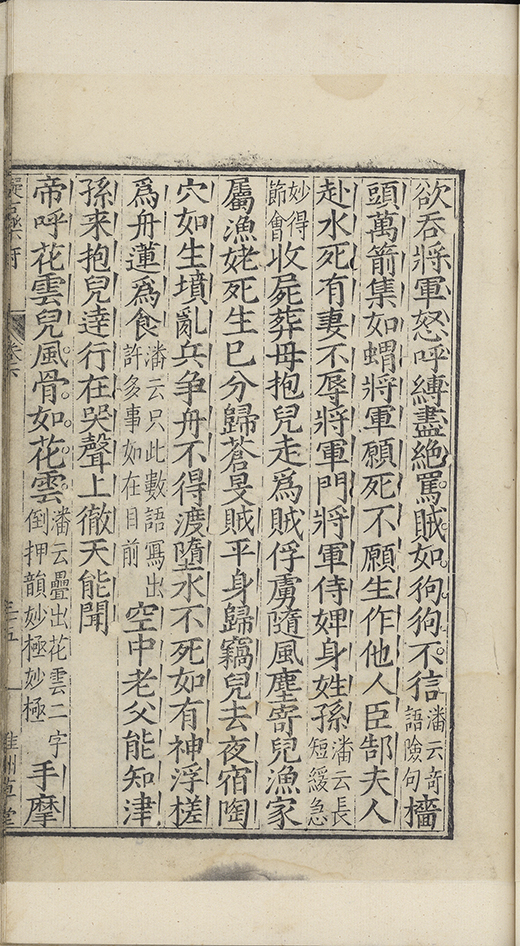 欲吞將軍怒呼縛盡絕罵賊如狗狗不信潘云奇語險句檣
頭萬箭集如蝟將軍願死不願生作他人臣郜夫人
赴水死有妻不辱將軍門將軍侍婢身姓孫潘云長短緩急
妙得節會收屍葬母抱兒走爲賊俘虜隨風塵寄兒漁家
屬漁姥死生已分歸蒼旻賊平身歸竊兒去夜宿陶
穴如生墳亂兵爭舟不得渡墮水不死如有神浮槎
爲舟蓮爲食潘云只此數語寫出許多事如在目前空中老父能知津
孫来抱兒逹行在哭聲上徹天能聞
帝呼花雲兒風骨如花雲潘云疊出花雲二字倒押韻妙極妙極手摩